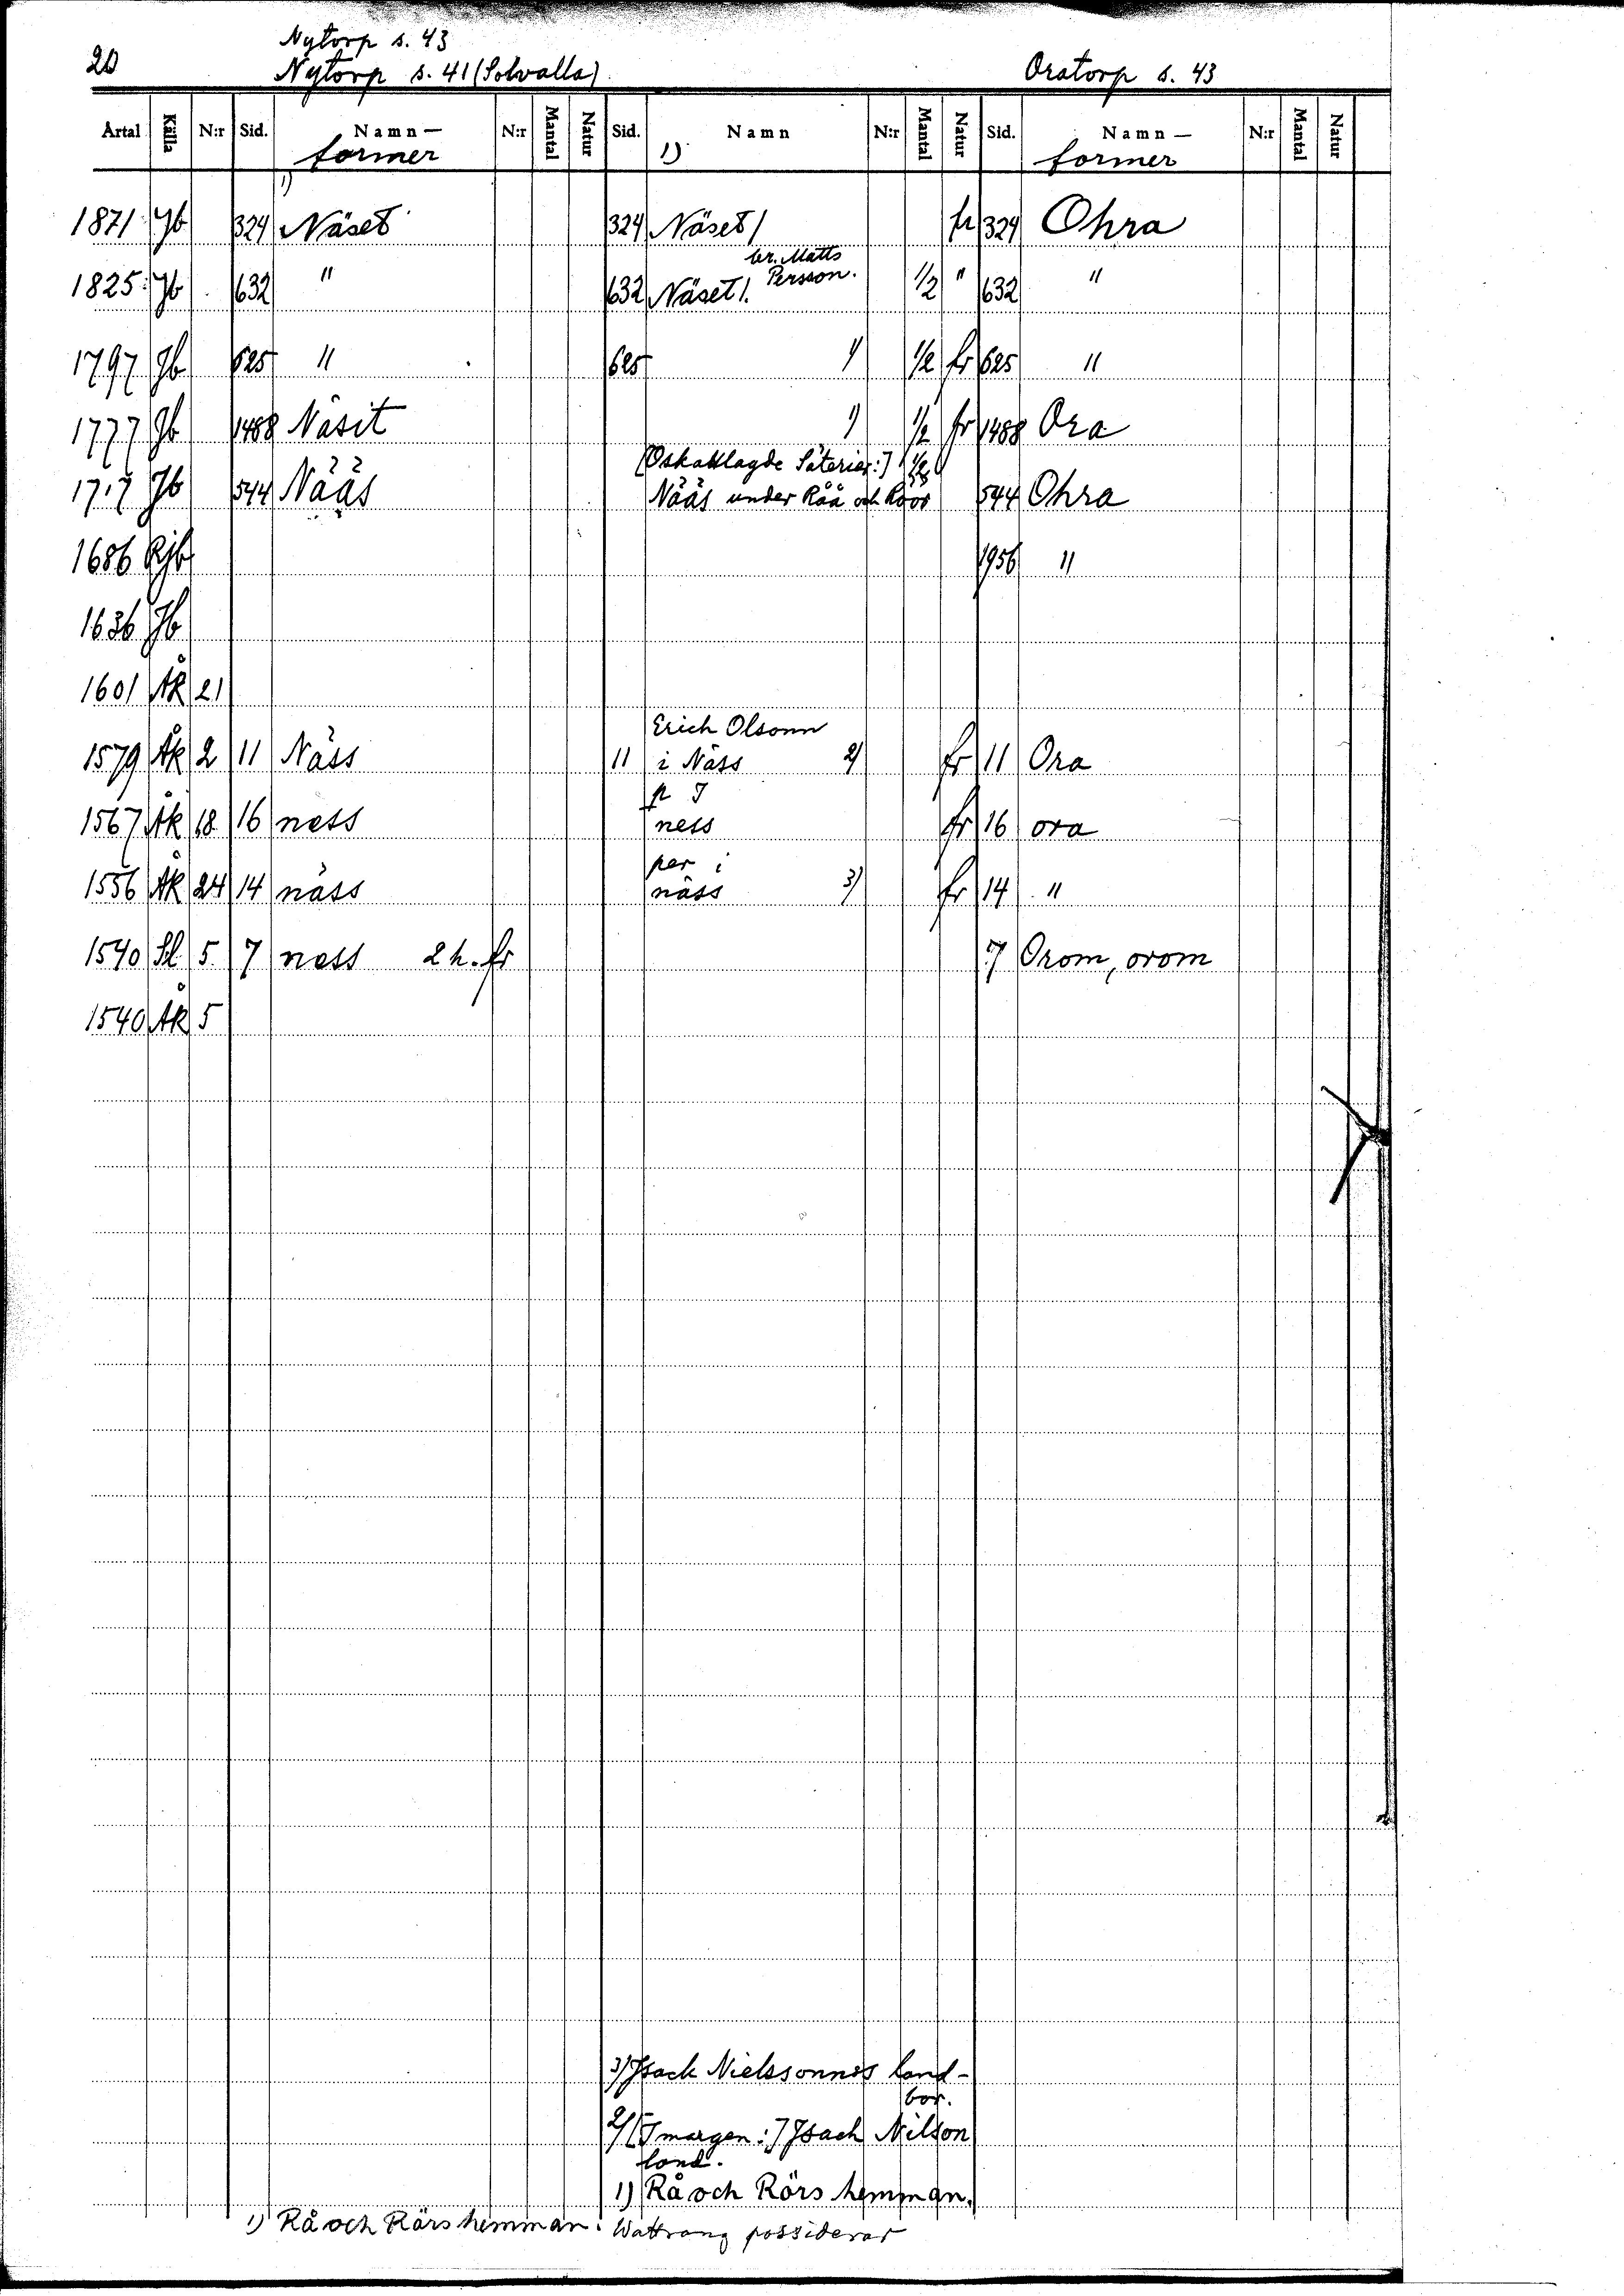 20
Nytorp s. 43
Nytorp s. 41 (Solvalla)
Oratorp s. 43
Årtal Källa N:r Sid. Namn — former N:r Mantal Natur Sid. Namn 1) N:r Mantal Natur Sid. Namn — former N:r Mantal Natur
1)
1871 Jb 324 Näset 324 Näset/ fr 324 Ohra
br. Matts
1825 Jb 632 " 632 Näset/. Persson. 1/2 " 632 "
1797 Jb 625 " 625 1/ 1/2 fr 625 "
1777 Jb 1488 Näsit 1) 1/2 fr 1488 Ora
[Oskattlagde Säterier:] 1/2
1717 Jb 544 Nääs Nääs under Råå och Röör 544 Ohra
1686 Rjb 1956 "
1636 Jb
1601 Åk 21
Erich Olsonn
1579 Åk 2 11 Näss 11 i Näss 2) fr 11 Ora
p J
1567 Åk 18 16 ness ness fr 16 ora
per i
1556 Åk 24 14 näss näss 3) fr 14 "
1540 Sl 5 7 ness 2 h. fr 7 Orom, orom
1540 Åk 5
3) Jsack Nielssonnes land-
bor.
2/ [I margen:] Jsach Nilson
land.
1) Rå och Rörs hemman.
1) Rå och Rörs hemman. Wattrang possiderar